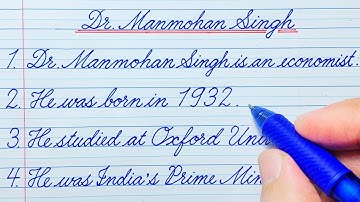 Dr. Manmohan Singh
1. Dr. Manmohan Singh is an economist.
2. He was born in 1932.
3. He studied at Oxford
4. He was India's Prime